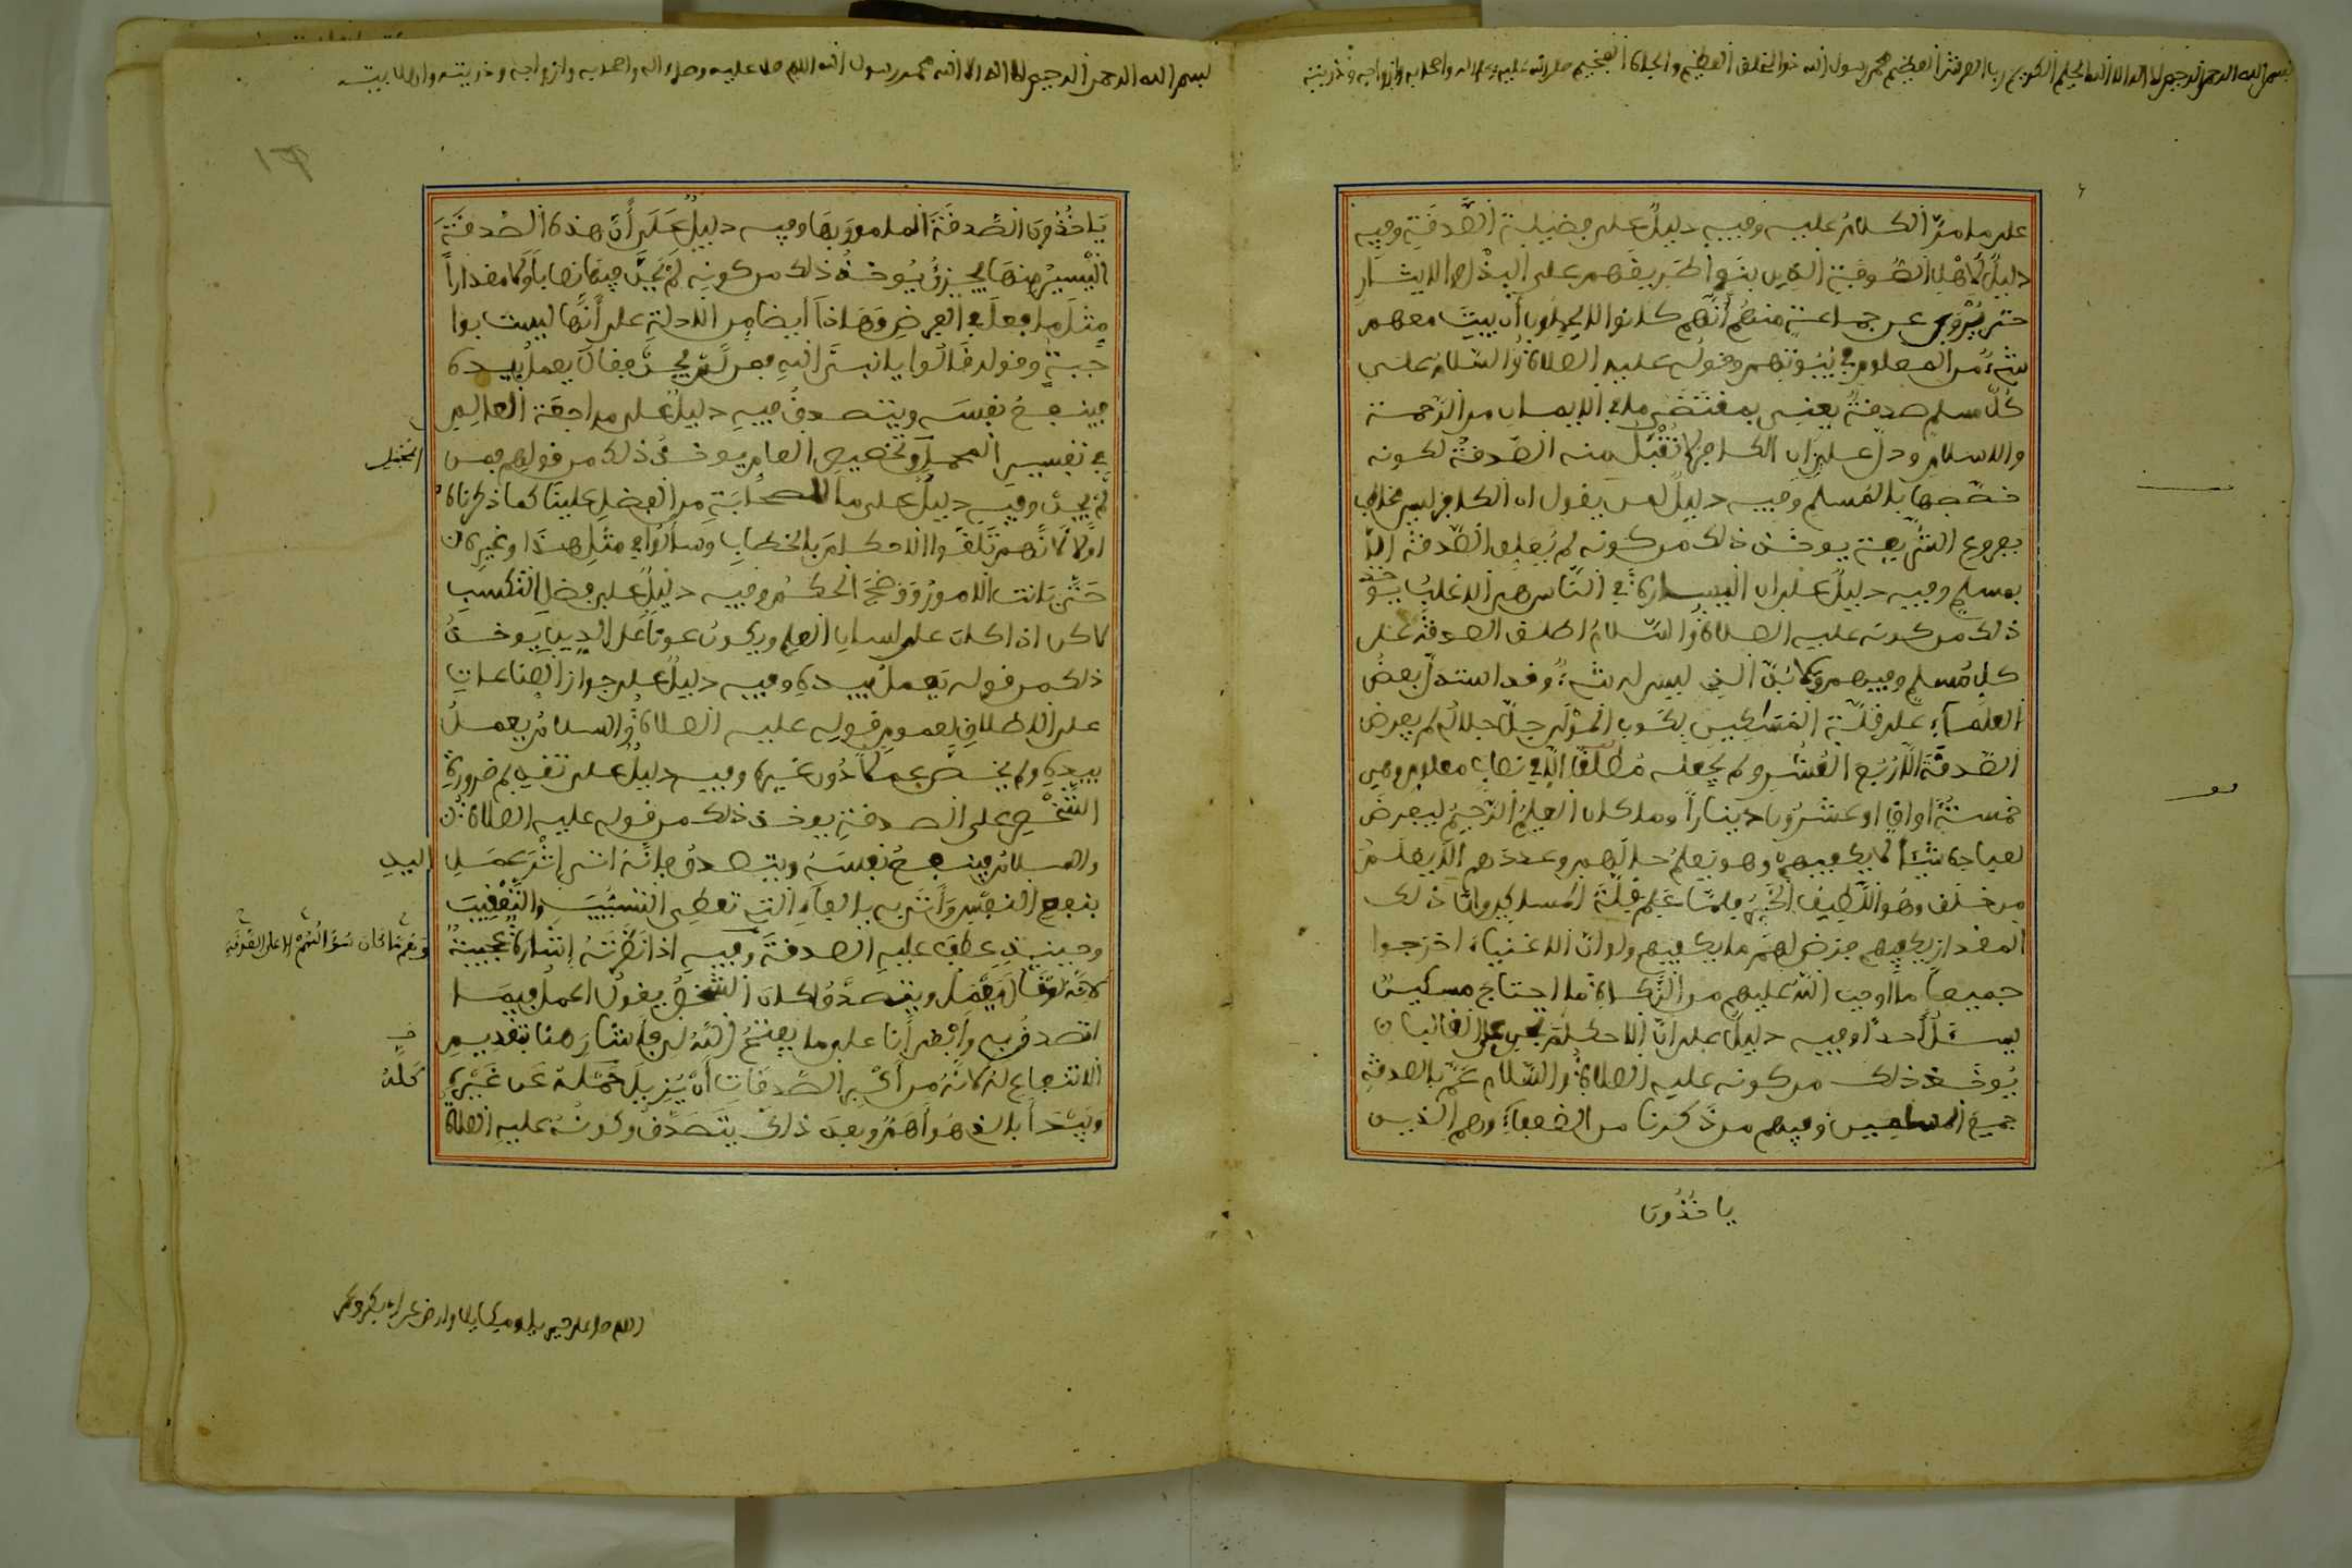 بسم الله الرحمن الرحيم لا اله الا الله الحليم الكريم رب العرش العظيم محمد رسول الله ذو الخلق العظيم والجاه الفخيم صلى الله عليه وعلى اله واصحابه وازواجه وذريته
على ما مر الكلام عليه وفيه دليل على فضيلة الصدقة وفيه
دليل لاهل الصوفية الذين بنوا طريقهم على البذل والايثار
حتى يروى عن جماعة منهم انهم كانوا لا يخلون ان يبيت معهم
شيء من المعلوم في بيوتهم وقوله عليه الصلاة والسلام على
كل مسلم صدقة يعني بمقتضى ما في الايمان من الرحمة
والاسلام ودل على ان الكافر لا تقبل منه الصدقة لكونه
خصصها بالمسلم وفيه دليل لمن يقول ان الكافر ليس مخاطب
بفروع الشريعة يوخذ ذلك من كونه لم يعلق الصدقة الا
بمسلم وفيه دليل على ان اليسارة في الناس هي الاغلب يوخذ
ذلك من كونه عليه الصلاة والسلام اطلق الصدقة على
كل مسلم وفيهم ولا بد الذي ليس له شيء وقد استدل بعض
العلماء على قلة المساكين بكون المولى جل جلاله لم يفرض
الصدقة الا ربع العشر ولم يجعله مطلقا الا في نصاب معلوم وهي
خمسة اواق او عشرون دينارا وما كان العليم الرحيم ليفرض
لعباده شيئا لا يكفيهم وهو يعلم حالهم وعددهم الا يعلم
من خلق وهو اللطيف الخبير فلما علم قلة المساكين وان ذلك
المقدار يكفيهم فرض لهم ما يكفيهم ولو ان الاغنياء اخرجوا
جميعا ما اوجب الله عليهم من الزكاة ما احتاج مسكين
يسئل احدا وفيه دليل على ان الاحكام تجري على الغالب
يوخذ ذلك من كونه عليه الصلاة والسلام عم بالصدقة
جميع المسلمين وفيهم من ذكرنا من الضعفاء وهم الذين
ياخذون
بسم الله الرحمن الرحيم لا اله الا الله محمد رسول الله اللهم صل عليه وعلى اله واصحابه وازواجه وذريته واهل بيته
ياخذون الصدقة المامور بها وفيه دليل على ان هذه الصدقة
اليسير منها يجزئ يوخذ ذلك من كونه لم يحد فيها نصابا ولا مقدارا
مثل ما فعل في الفرض وهذا ايضا من الادلة على انها ليست بوا
جبة وقوله قالوا يا نبي الله فمن لم يجد فقال يعمل بيده
فينفع نفسه ويتصدق فيه دليل على مراجعة العالم
في تفسير المجمل وتخصيص العام يوخذ ذلك من قولهم فمن
لم يجد وفيه دليل على ما للصحابة من الفضل علينا كما ذكرناه
اولا لانهم تلقوا الاحكام بالخطاب وسالوا في مثل هذا وغيره
حتى بانت الامور ووضح الحكم وفيه دليل على فضل التكسب
لاكن اذا كان على لسان العلم ويكون عونا على الدين يوخذ
ذلك من قوله يعمل بيده وفيه دليل على جواز الصناعات
على الاطلاق لعموم قوله عليه الصلاة والسلام يعمل
بيده ولم يخص عملا دون غيره وفيه دليل على تقديم ضرورة
الشخص على الصدقة يوخذ ذلك من قوله عليه الصلاة
والسلام فينفع نفسه ويتصدق فانه اتى اثر عمل اليد
بنفع النفس واتى به بالفاء التي تعطي التسبيب والتعقيب
وحينئذ عطف عليه الصدقة وفيه اذا نظرته اشارة عجيبة
لانه لو قال يعمل ويتصدق لكان الشخص يقول اعمل فيما
اتصدق به وابقى انا على ما يفتح الله لي فاشار هنا بتقديم
الانتفاع له لانه من اكبر الصدقات ان يزيل كله عن غيره
ويبدأ بالذي هو اهم وبعد ذلك يتصدق وكونه عليه الصلاة